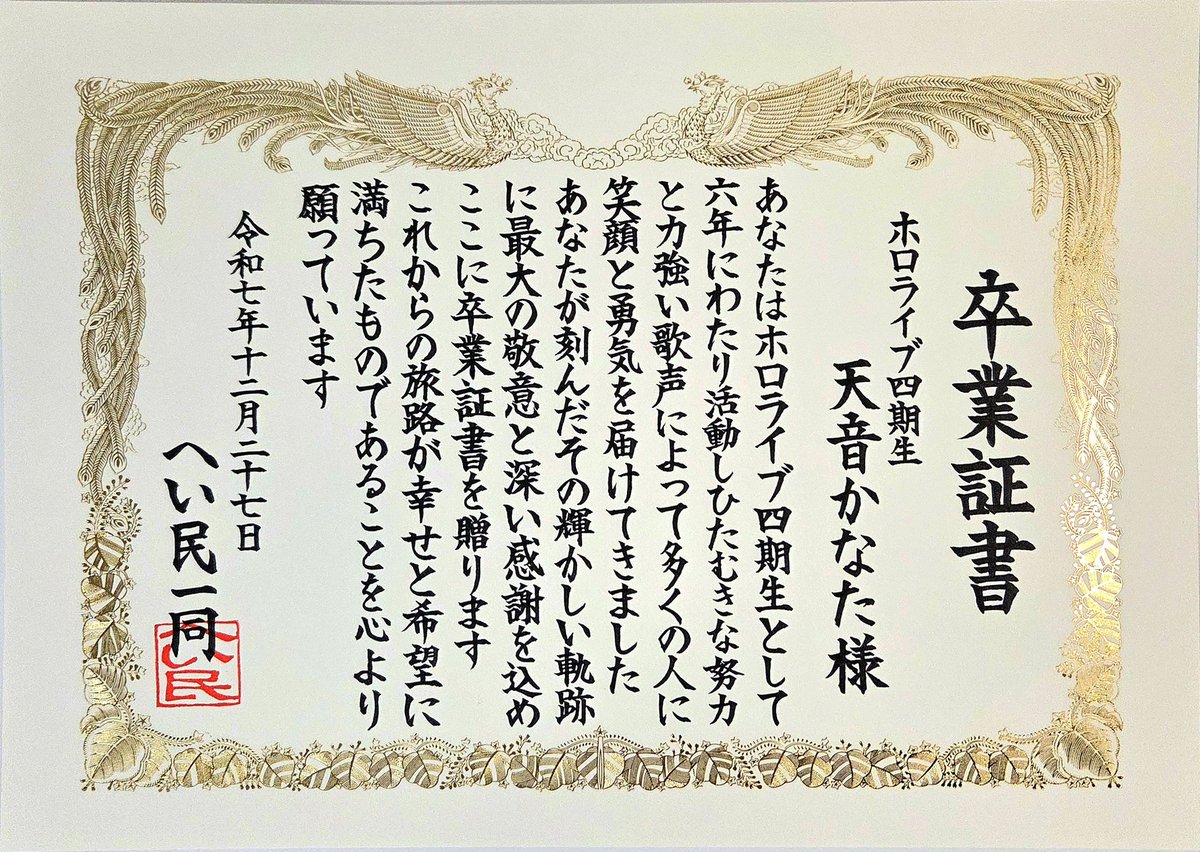 卒業証書
ホロライブ四期生
天音かなた様
あなたはホロライブ四期生として
六年にわたり活動しひたむきな努力
と力強い歌声によって多くの人に
笑顔と勇気を届けてきました
あなたが刻んだその輝かしい軌跡
に最大の敬意と深い感謝を込め
ここに卒業証書を贈ります
これからの旅路が幸せと希望に
満ちたものであることを心より
願っています
令和七年十二月二十七日
へい民一同
へい民